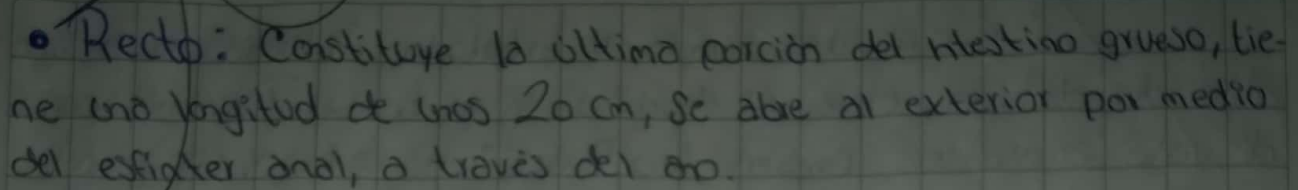 • Recto: Constituye la última porción del ntestino grueso, tie-
ne una longitud de unos 20 cm, Se abre al exterior por medio
del esfigter anal, a través del ano.